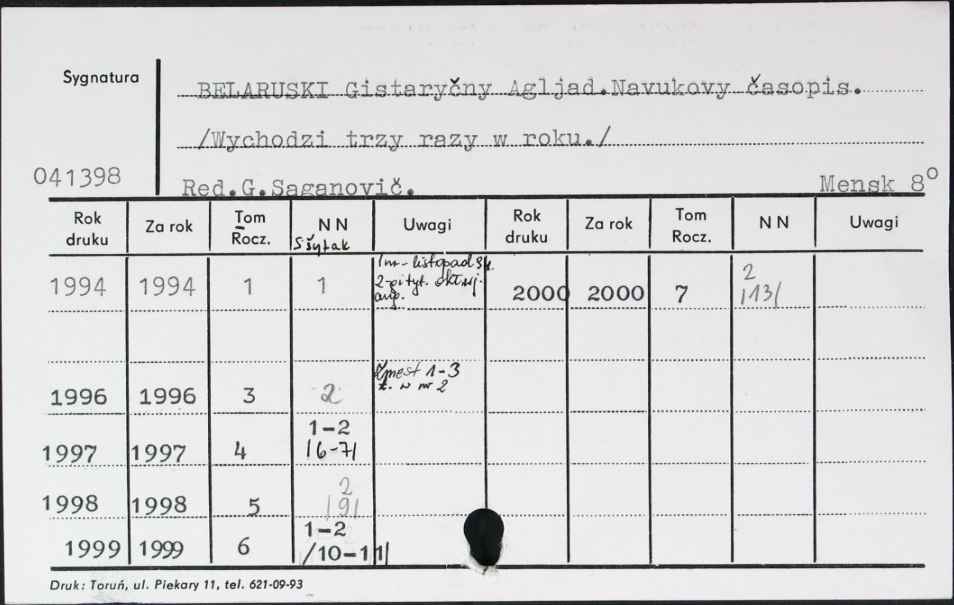 Sygnatura
BELARUSKI Gistaryčny Agljad.Navukovy časopis.
/Wychodzi trzy razy w roku./
041398
Red.G.Saganovič. Mensk 8°
Rok druku Za rok Tom Rocz. NN Sšytak Uwagi Rok druku Za rok Tom Rocz. NN Uwagi
1994 1994 1 1 listopad 2-gi tyt. ang. 2000 2000 7 2 /13/
1996 1996 3 2 Zmest 1-3 t. w nr 2
1997 1997 4 1-2 /6-7/
1998 1998 5 2 /9/
1999 1999 6 1-2 /10-11/
Druk: Toruń, ul. Piekary 11, tel. 621-09-93